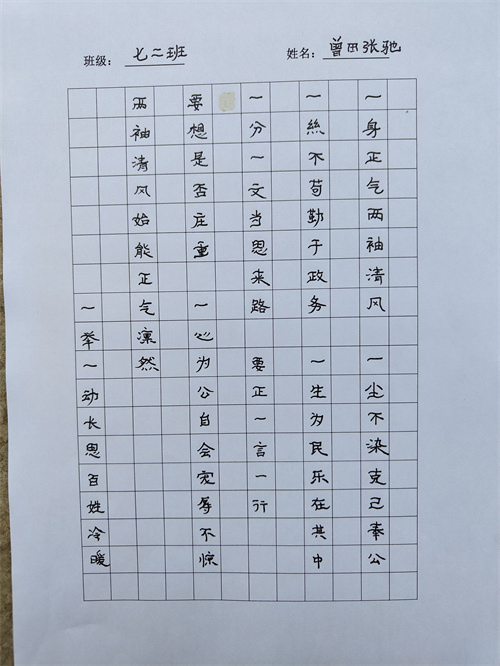 班级：七二班 姓名：曾田张驰
一身正气两袖清风 一尘不染克己奉公
一絲不苟勤于政务 一生为民乐在其中
一分一文当思来路 要正一言一行
要想是否庄重 一心为公自会宠辱不惊
两袖清风始能正气凛然
一举一动长思百姓冷暖